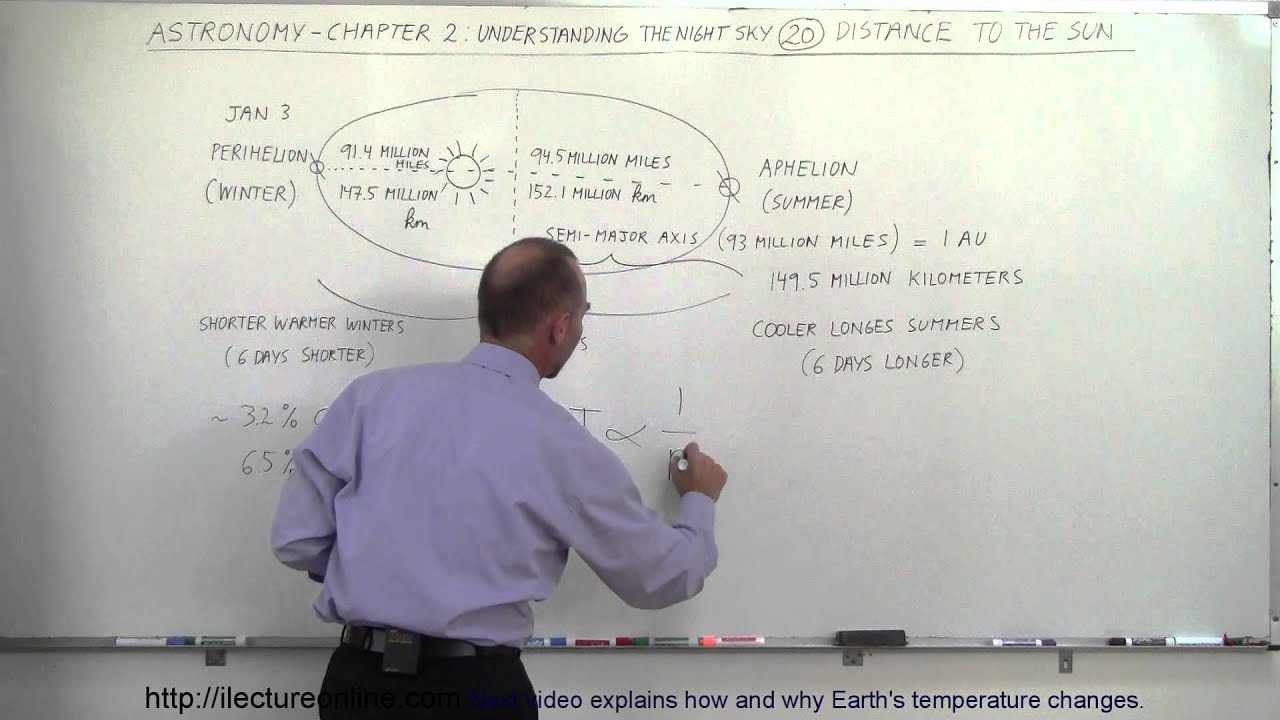 ASTRONOMY - CHAPTER 2: UNDERSTANDING THE NIGHT SKY 20 DISTANCE TO THE SUN
JAN 3
PERIHELION
(WINTER)
91.4 MILLION
MILES
147.5 MILLION
km
94.5 MILLION MILES
152.1 MILLION km
APHELION
(SUMMER)
SEMI-MAJOR AXIS (93 MILLION MILES) = 1 AU
149.5 MILLION KILOMETERS
SHORTER WARMER WINTERS
(6 DAYS SHORTER)
COOLER LONGES SUMMERS
(6 DAYS LONGER)
~ 3.2%
6.5%
∝ 1
http://ilectureonline.com Next video explains how and why Earth's temperature changes.